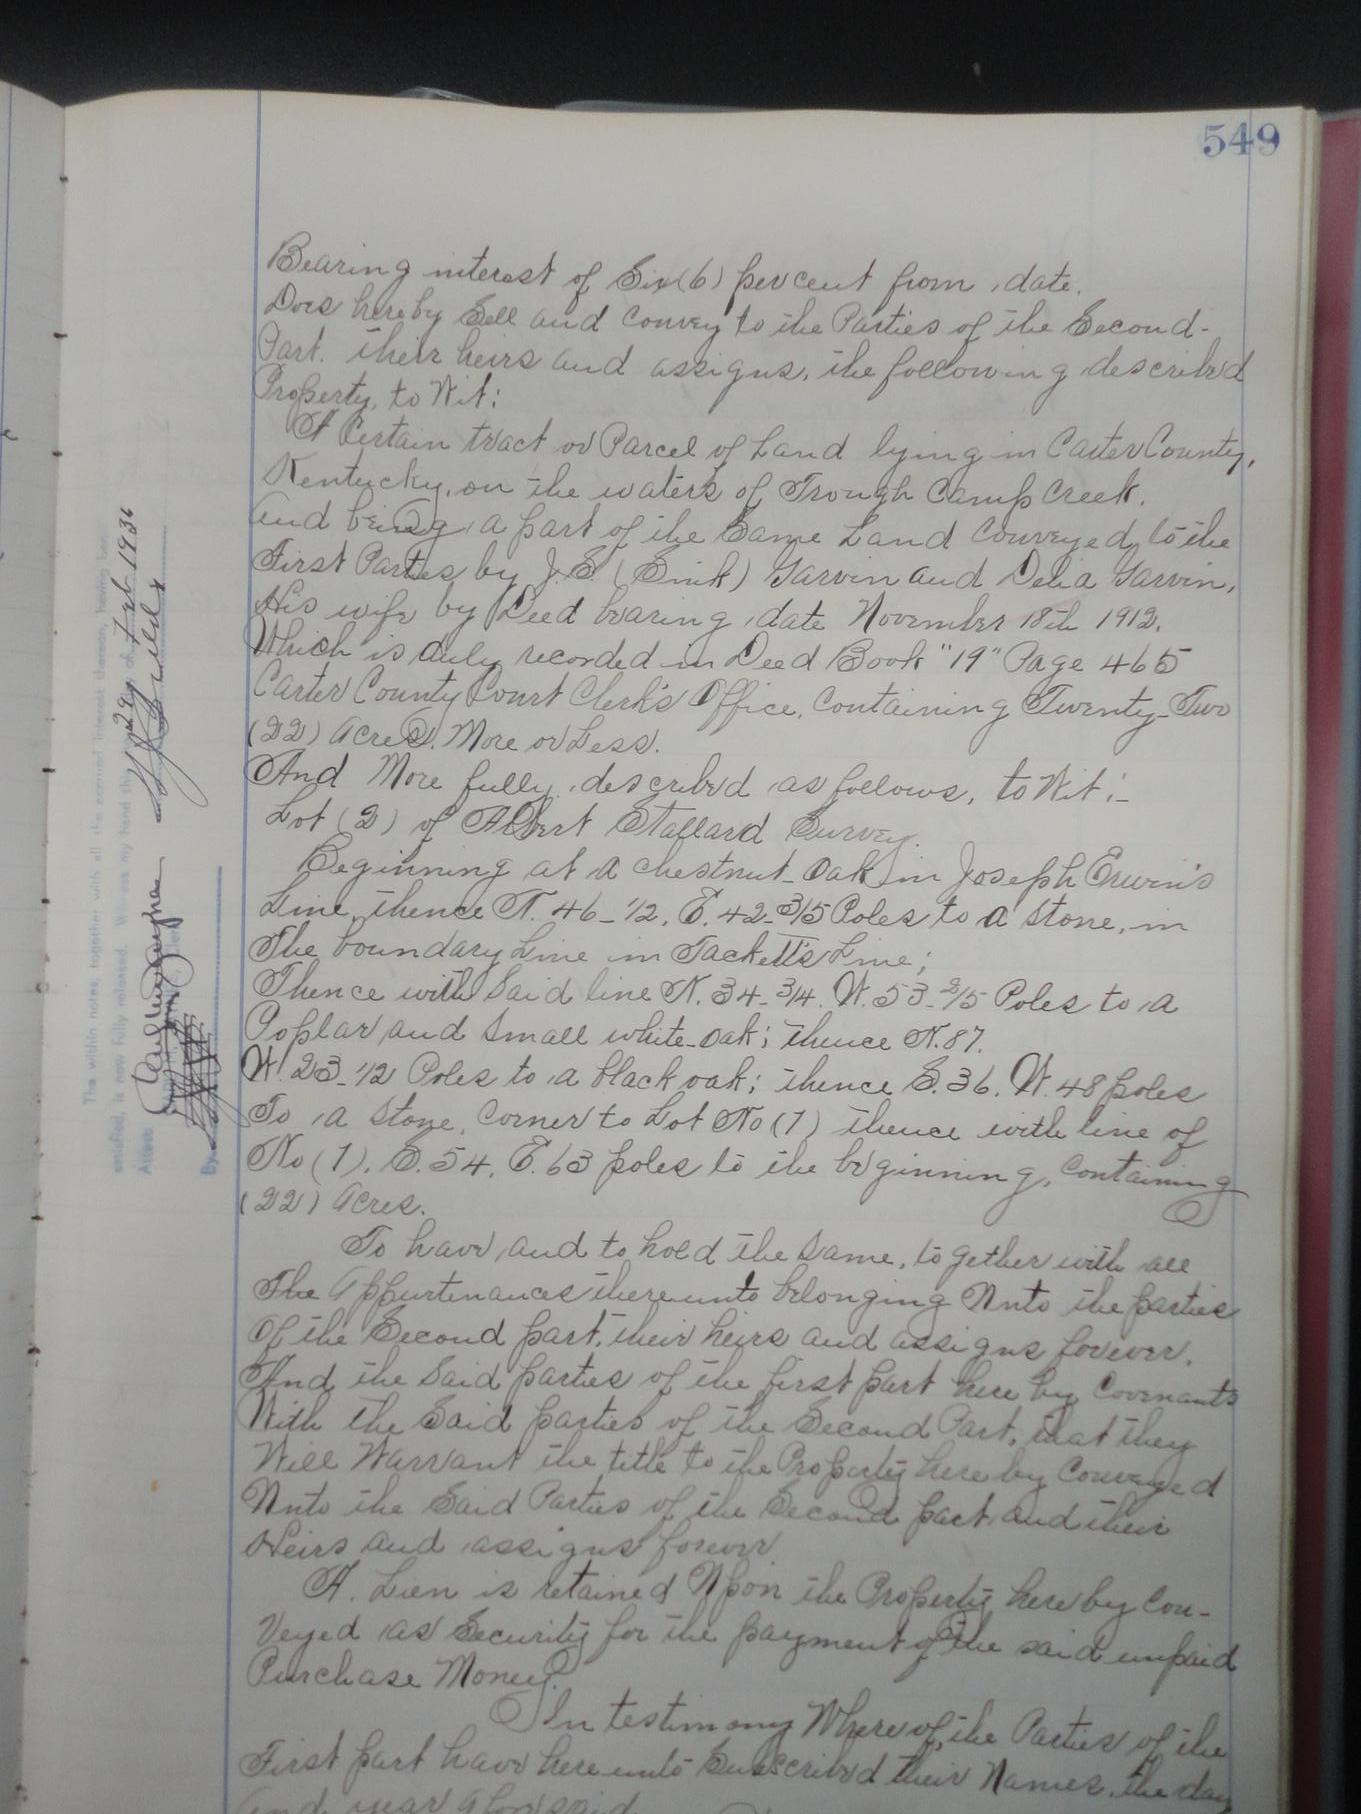 549
Bearing interest of Six (6) percent from date.
Does hereby Sell and Convey to the Parties of the Second-
Part. their heirs and assigns, the following described
Property, to Wit:
A Certain tract or Parcel of Land lying in Carter County,
Kentucky, on the waters of Trough Camp Creek.
And being a part of the Same Land Conveyed to the
First Parties by J.E. (Enik) Garvin and Delia Garvin,
His wife by Deed bearing date November 18th 1912.
Which is duly recorded in Deed Book "19" Page 465
Carter County Court Clerk's Office, Containing Twenty-Two
(22) Acres. More or Less.
And More fully described as follows, to Wit:-
Lot (2) of Albert Stallard Survey.
Beginning at a chestnut-Oak in Joseph Erwin's
Line, thence N. 46-1/2. E. 42-3/5 Poles to a stone, in
The boundary Line in Tackett's Line;
Thence with Said line N. 34-3/4. W. 53-2/5 Poles to a
Poplar and Small white-oak; thence N. 87.
W. 23-1/2 Poles to a black oak; thence S. 36. W. 48 poles
To a Stone, Corner to Lot No (1) thence with line of
No (1). S. 54. E. 63 poles to the beginning, Containing
(22) Acres.
To have and to hold the Same, together with all
The Appurtenances thereunto belonging Unto the parties
Of the Second part, their heirs and assigns forever.
And the Said parties of the first part here by Covenants
With the Said parties of the Second Part, that they
Will Warrant the title to the Property here by Conveyed
Unto the Said Parties of the Second part and their
Heirs and assigns forever
A. Lien is retained Upon the Property here by Con-
veyed as Security for the payment of the said unpaid
Purchase Money.
In testimony Where of, the Parties of the
First part have here unto Subscribed their Names, the day
And year aforesaid
The within notes, together with all the earned interest thereon, having been
satisfied, is now fully released. Witness my hand this 29 day of Feb 1936
Attest:
By